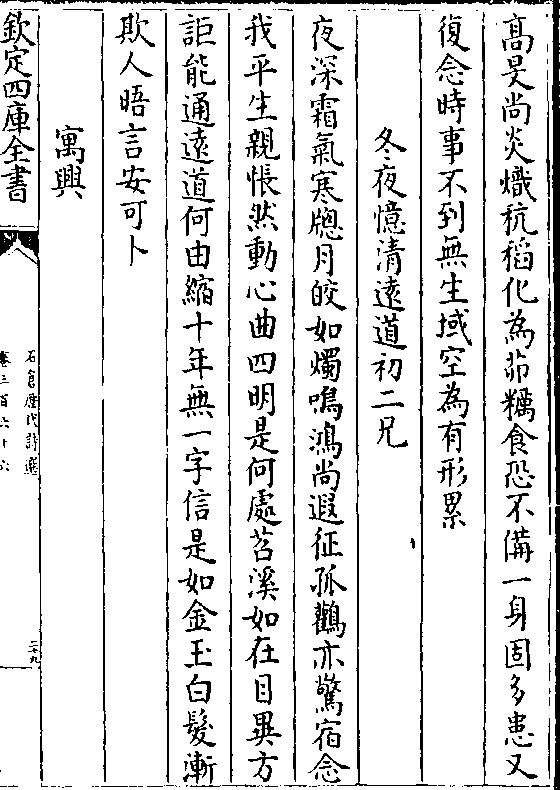 高旻尚炎熾秔稻化為茆糲食恐不備一身固多患又
復念時事不到無生域空為有形累
冬夜憶清遠道初二兄
夜深霜氣寒牕月皎如燭鳴鴻尚遐征孤鸛亦驚宿念
我平生親悵然動心曲四明是何處苕溪如在目異方
詎能通遠道何由縮十年無一字信是如金玉白髮漸
欺人晤言安可卜
寓興
欽定四庫全書
石倉歷代詩選
卷三百六十六
二十九